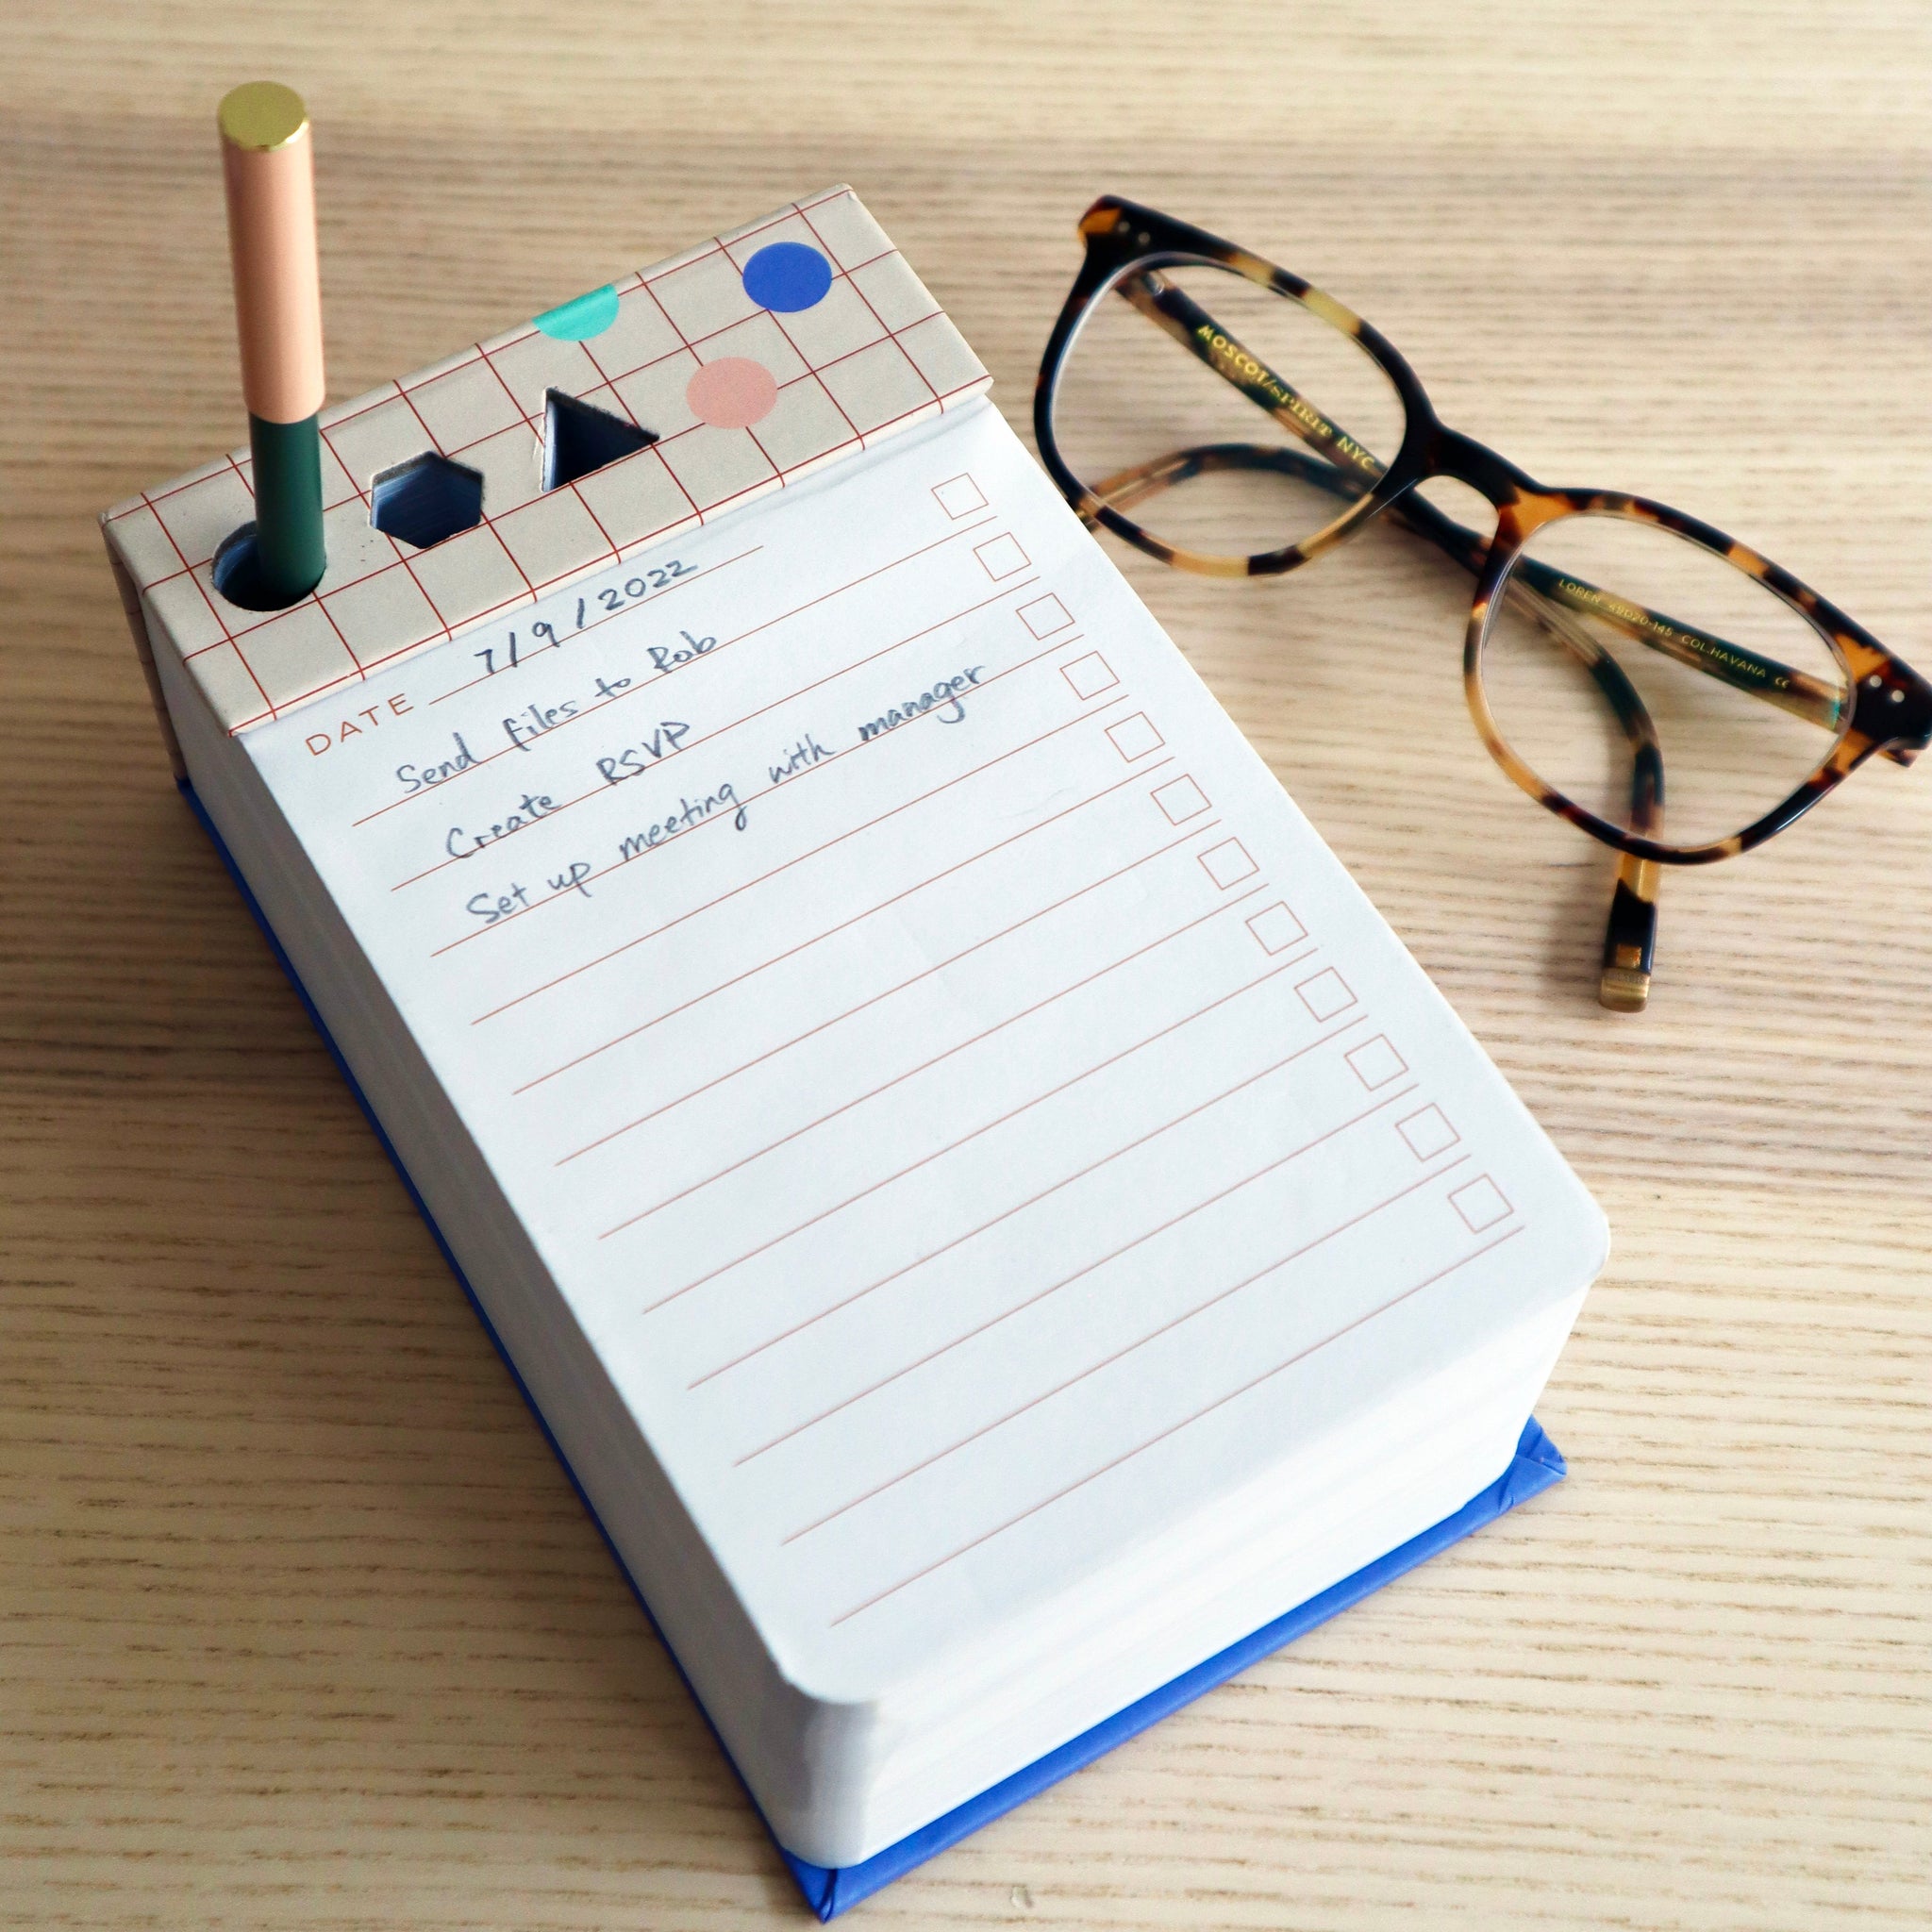 DATE 7/9/2022
Send files to Rob
Create RSVP
Set up meeting with manager
MOSCOT/SPIRIT NYC
LOREN 49020-145 COL.HAVANA CE